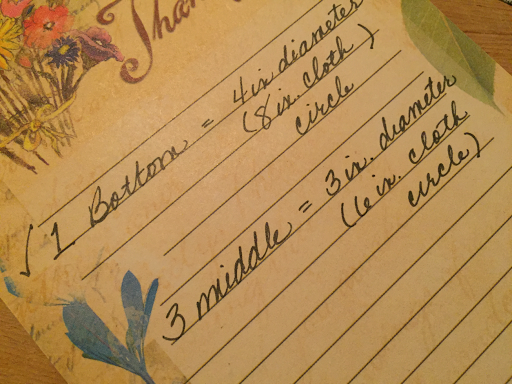 ✓ 1 Bottom = 4 in diameter
(8 in. cloth)
circle
3 middle = 3 in. diameter
(6 in. cloth
circle)